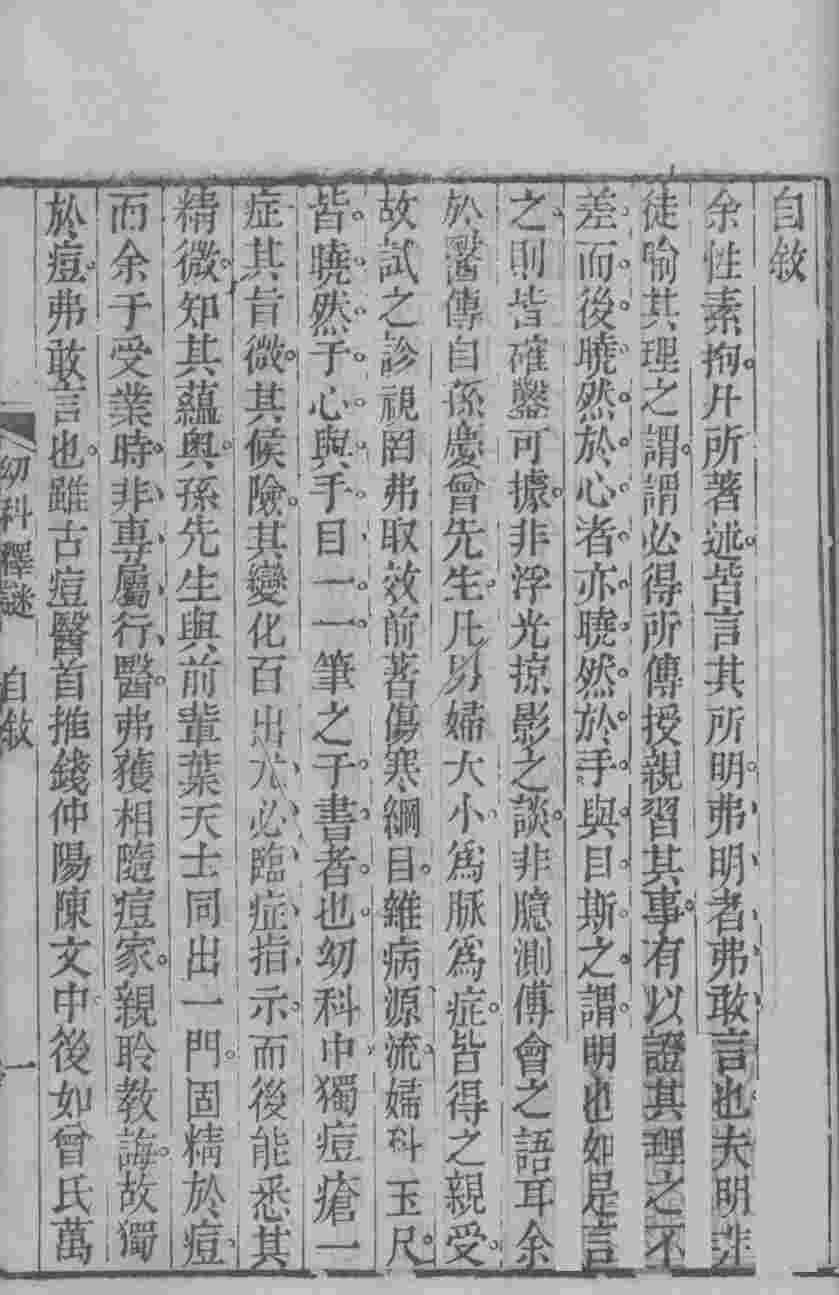 自敘
余性素拘凡所著述皆言其所明弗明者弗敢言也夫明非
徒喻其理之謂謂必得所傳授親習其事有以證其理之不
差而後曉然於心者亦曉然於手與目斯之謂明也如是言
之則皆確鑿可據非浮光掠影之談非臆測傅會之語耳余
於醫傳自孫慶曾先生凡男婦大小為脉為症皆得之親受
故試之診視罔弗取效前著傷寒綱目雜病源流婦科玉尺
皆曉然于心與手目一一筆之于書者也幼科中獨痘瘡一
症其旨微其候險其變化百出尤必臨症指示而後能悉其
精微知其蘊奧孫先生與前輩葉天士同出一門固精於痘
而余于受業時非專屬行醫弗獲相隨痘家親聆教誨故獨
於痘弗敢言也雖古痘醫首推錢仲陽陳文中後如曾氏萬
幼科釋謎 自敘 一